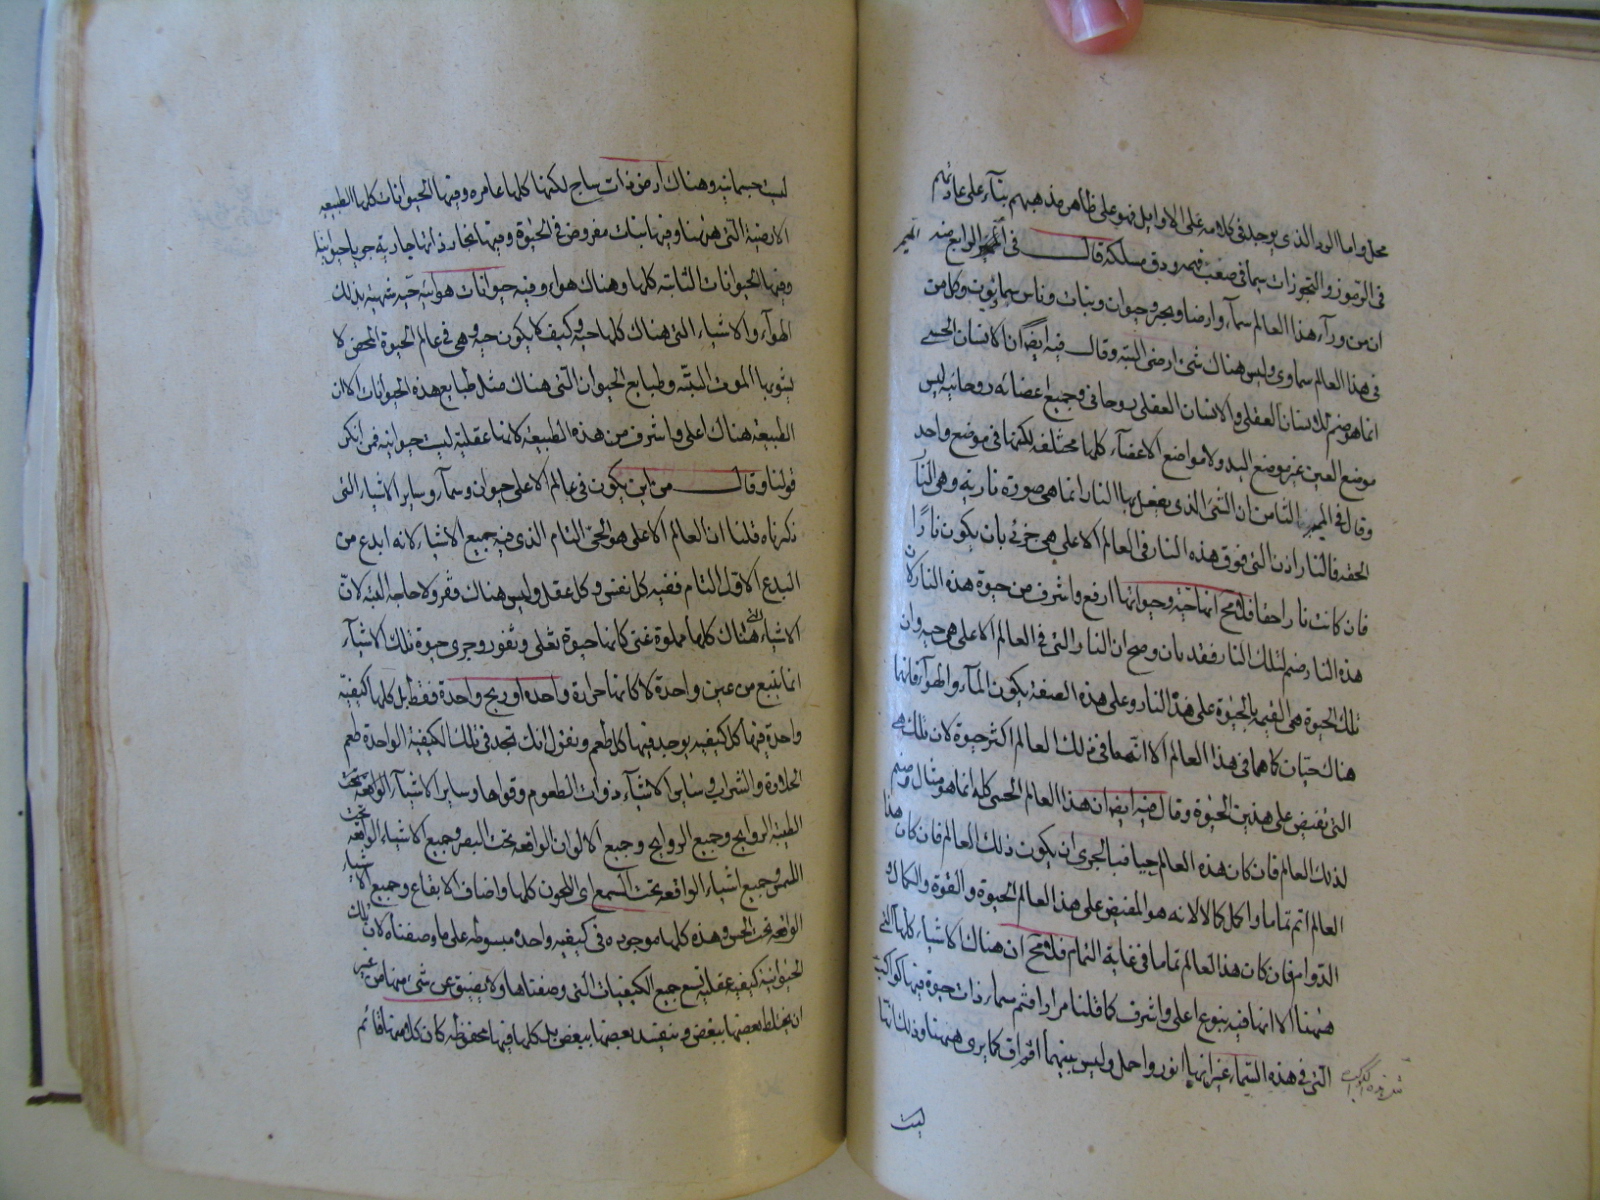 محل واما الرد الذي يوجد في كلامه على الاوايل فهو على ظاهر مذهبهم بناء على عادتهم
في الرموز والتجوزات سيما في صعب فهمه ودق مسلكه قال في الميمر الرابع منه
الميمر
ان من ورآء هذا العالم سمآء وارضا وبحر وحيوان ونبات وناس سمائيون وكل من
في هذا العالم سماوى وليس هناك شئ ارضى البتة وقال فيه ايضا ان الانسان الحسى
انما هو صنم للانسان العقلى والانسان العقلى روحانى وجميع اعضائه روحانية ليس
موضع العين غير موضع اليد ولا مواضع الاعضآء كلها مختلفة لكنها في موضع واحد
وقال في الميمر الثامن ان الشئ الذى يفعل بها النار انما هى صورة نارية وهى النار
الحقة فالنار اذن التى فوق هذه النار في العالم الاعلى هى احرى بان يكون نارًا
فان كانت نارا حقا فلا مح انها حية وحيوتها ارفع واشرف من حيوة هذه النار لان
هذه النار صنم لتلك النار فقد بان وصح ان النار التى في العالم الاعلى هى حية وان
تلك الحيوة هى القيمة بالحيوة على هذه النار وعلى هذه الصفة يكون المآء والهوآء فانهما
هناك حيان كما هما في هذا العالم الا انهما في ذلك العالم اكثر حيوة لان تلك هى
التى تفيض على هذين الحيوة وقال فيه ايضا ان هذا العالم الحسى كله انما هو مثال وصنم
لذلك العالم فان كان هذه العالم حيا فبالحرى ان يكون ذلك العالم فان كان هذا
العالم اتم تماما واكمل كمالا لانه هو المفيض على هذا العالم الحيوة والقوة والكمال و
الدوام فان كان هذا العالم تماما في غاية التمام فلا مح ان هناك الاشياء كلها التى
ههنا الا انها فيه بنوع اعلى واشرف كما قلنا مرارا فثم سماء ذات حيوة فيها كواكب
التى في هذه السماء غير انها انور واحمل وليس بينهما افتراق كما يرى ههنا وذلك انها
ليست
ليست جسمانية وهناك ارض ذات سباخ لكنها كلها عامره وفيها الحيوانات كلها الطبيعية
الارضية التى ههنا وفيها نبات مفروض في الحيوة وفيها بحار ذاتها جارية جريا حيوانيا
وفيها الحيوانات الثابتة كلها وهناك هواء وفيه حيوانات هوائية حية شبيهة بذلك
الهوآء والاشياء التى هناك كلها حية وكيف لا يكون حية وهى في عالم الحيوة المحض لا
يشوبها الموت البتّة وطبايع الحيوان التى هناك مثل طبايع هذه الحيوانات الا ان
الطبيعة هناك اعلى واشرف من هذه الطبيعة لانها عقلية ليست حيوانيه فمن انكر
قولنا وقال من اين يكون في عالم الاعلى حيوان وسمآء وساير الاشياء التى
ذكرناه قلنا ان العالم الاعلى هو الحىّ التام الذى فيه جميع الاشياء لانه ابدع من
المبدع الاول التام ففيه كل نفس وكل عقل وليس هناك فقر ولا حاجة البتة لان
الاشياء التى هناك كلها مملوة غنى كانها حيوة تغلى وتفور وجرى حيوة تلك الاشيآء
انما ينبع من عين واحدة لا كانها حرارة واحده او ريح واحدة فقط بل كلها كيفيّة
واحدة فيها كل كيفيه يوجد فيها كل طعم ونقول انك تجد في تلك الكيفية الواحدة طعم
الحلاوة والشراب وساير الاشيآء ذوات الطعوم وقواها وساير الاشيآء الواقعة تحت
الطيبة الروايح وجميع الروايح وجميع الالوان الواقعة تحت البصر وجميع الاشياء الواقعة تحت
اللمس وجميع اشياء الواقعة تحت السمع اى اللحون كلها واصناف الايقاع وجميع الاشياء
الواقعة تحت الحس وهذه كلها موجوده في كيفيه واحدة مبسوطة على ما وصفناه لان تلك
الحيوانية كيفية عقلية تسع جميع الكيفيات التى وصفناها ولا يضيق عن شئ منها من غير
ان يختلط بعضها ببعض ويفسد بعضها ببعض بل كلها فيها محفوظة كان كل منها قائم